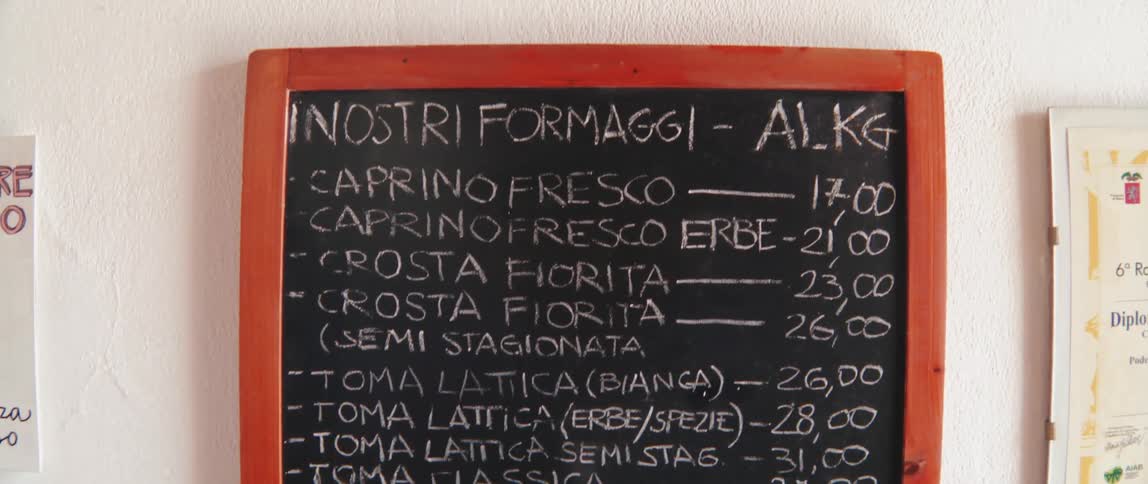 I NOSTRI FORMAGGI - AL KG
- CAPRINO FRESCO — 17,00
- CAPRINO FRESCO ERBE - 21,00
- CROSTA FIORITA — 23,00
- CROSTA FIORITA — 26,00
(SEMI STAGIONATA
- TOMA LATTICA (BIANCA) — 26,00
- TOMA LATTICA (ERBE/SPEZIE) - 28,00
- TOMA LATTICA SEMISTAG. - 31,00
- TOMA CLASSICA
RE
O
za
o
6ª Ra
Diplom
AIAB